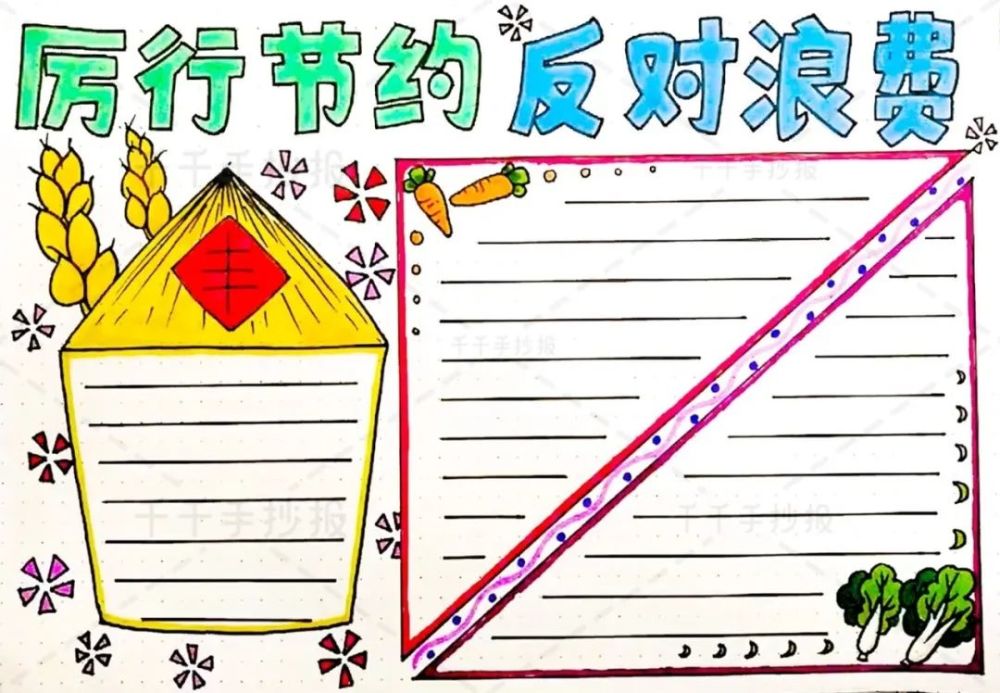 厉行节约 反对浪费
丰
千千手抄报
千千手抄报
千千手抄报
千千手抄报
千千手抄报